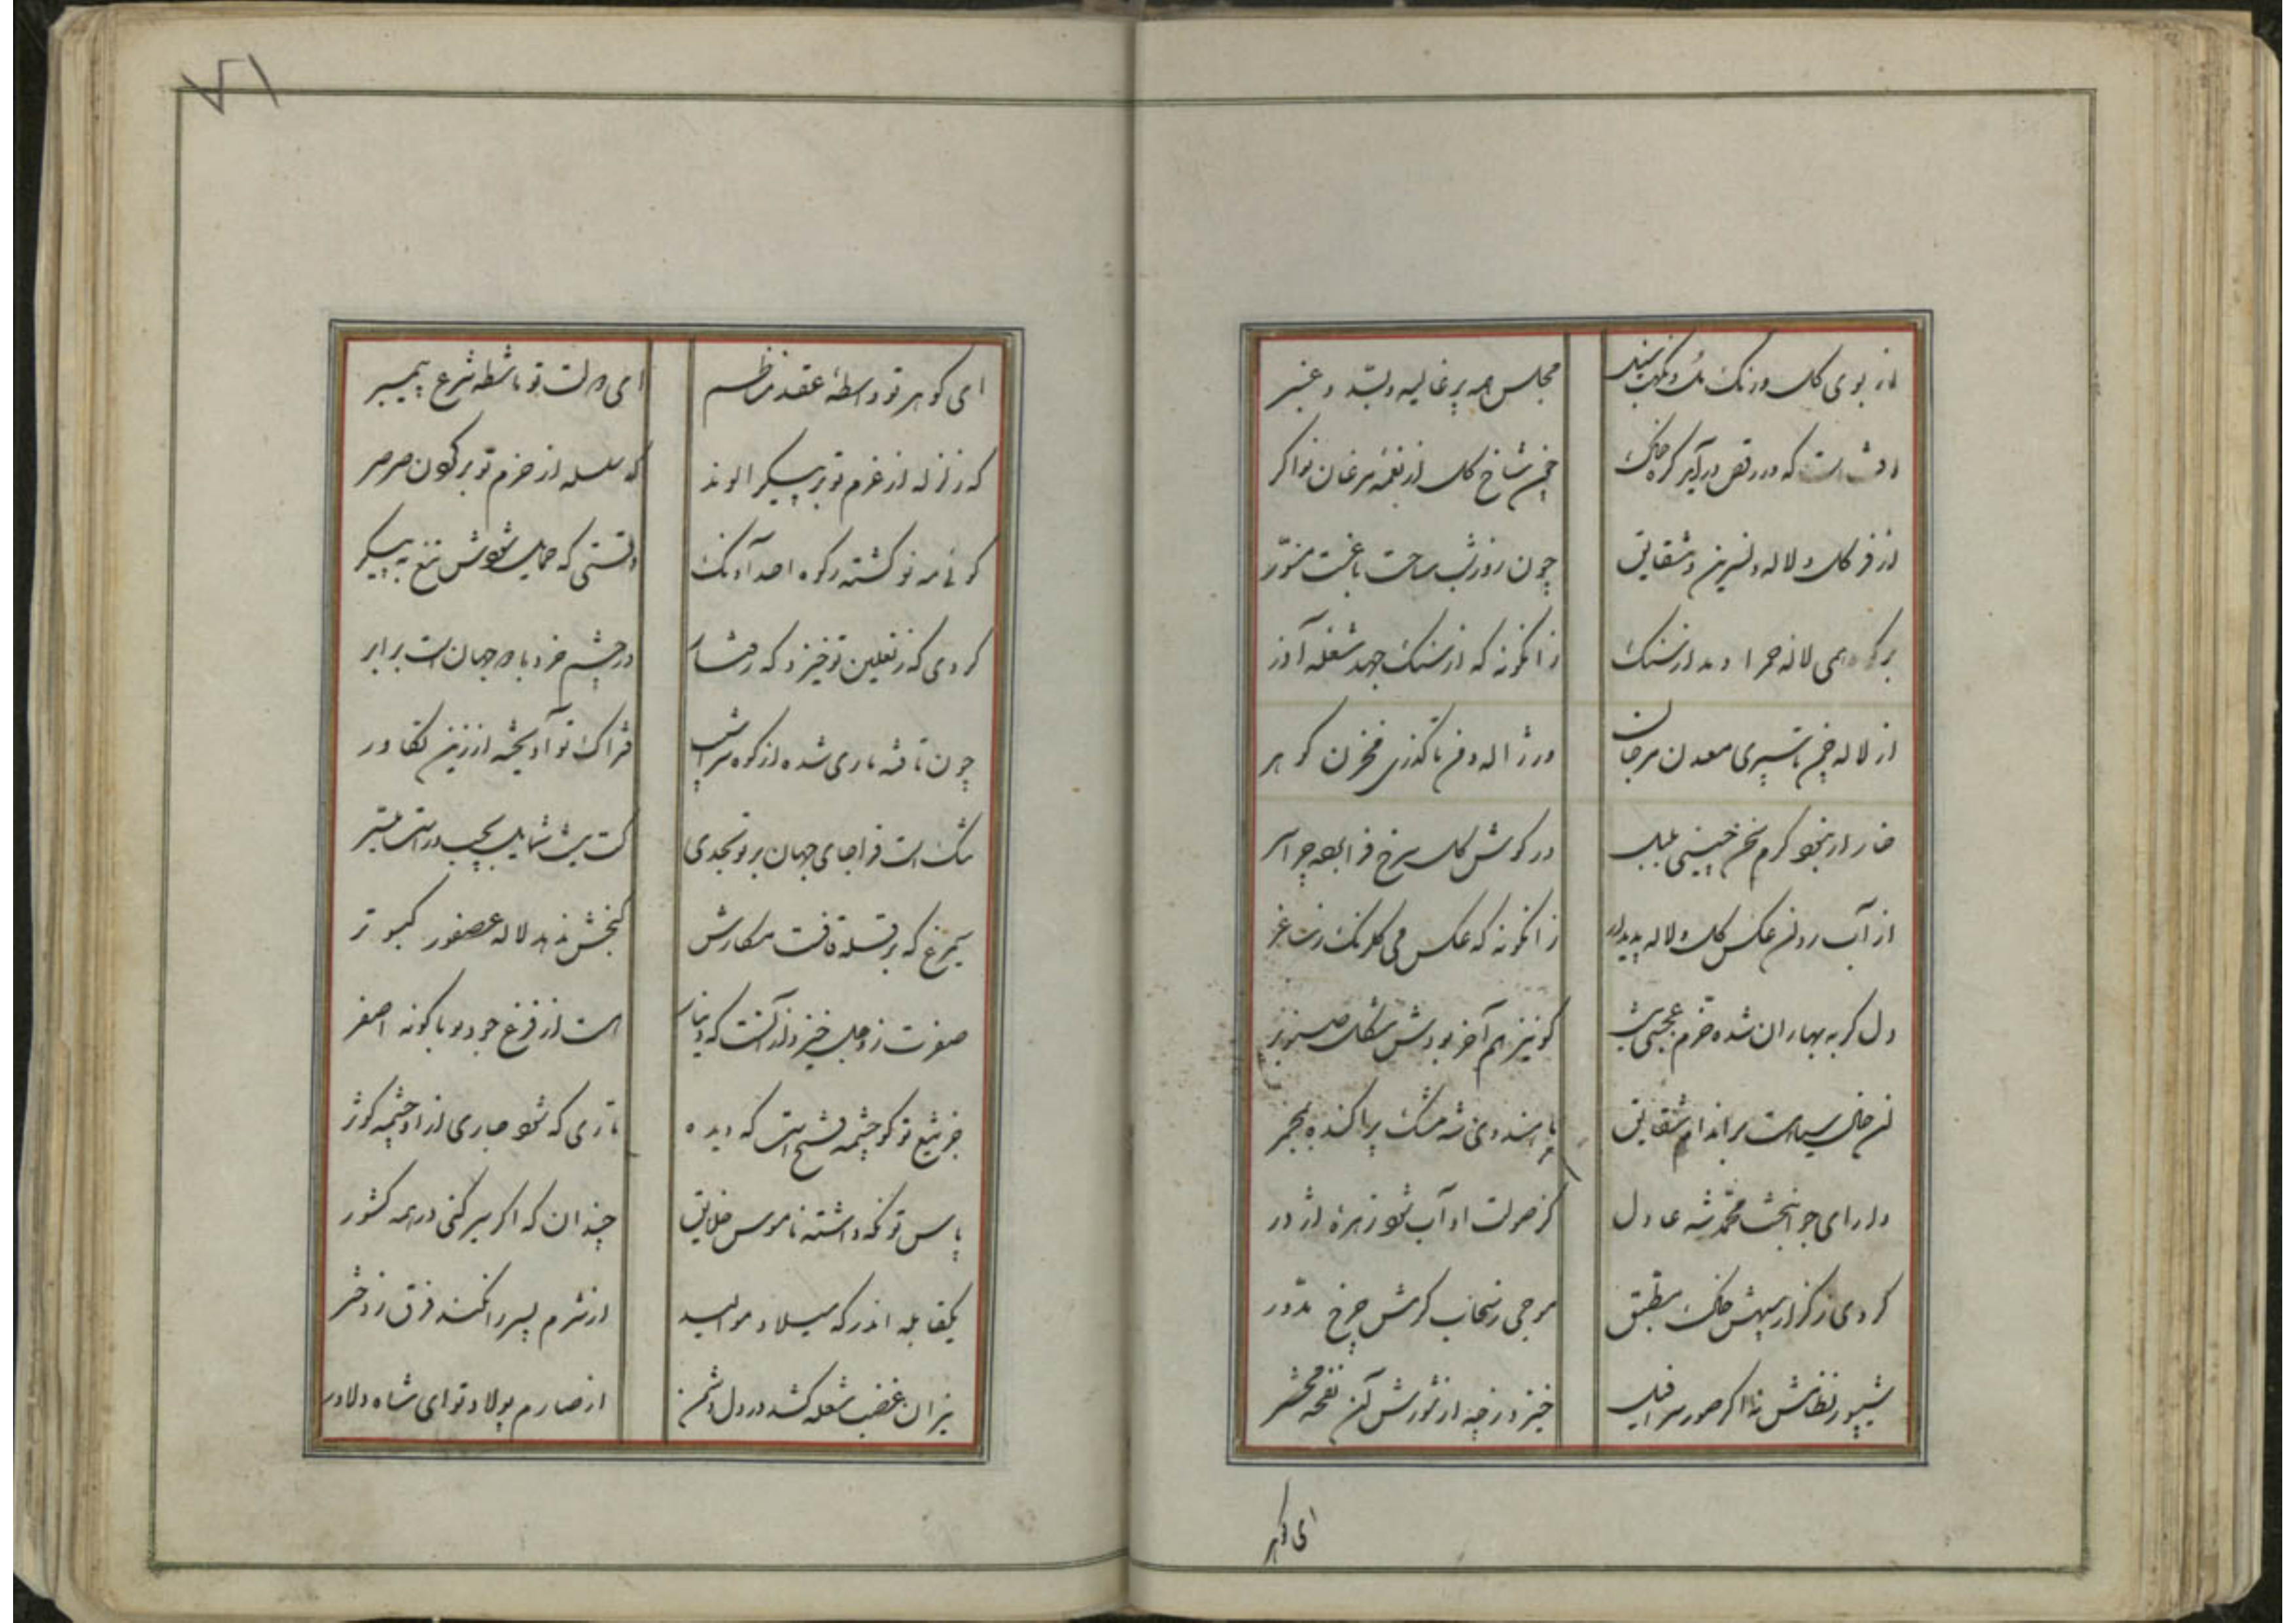 از بوی گل و رنگ مل و نکهت سنبل مجلس همه پر غالیه و بسّد و عنبر
که در رقص درآید کره خاک چمن شاخ گل از نغمه مرغان نواگر
از فر گل و لاله و نسرین و شقایق چون روز شب ساحت باغست منوّر
بر کوه همی لاله حمرا دمد از سنگ زانگونه که از سنگ جهد شعله آذر
از لاله چمن تا سپری معدن مرجان وز ژاله دمن تا گذری مخزن گوهر
خار ار نبخو کرم سخن چینی بلبل در گوش گل سرخ فرا بهو چرا سر
از آب روان عکس گل و لاله پدیدار زانگونه که عکس می گلرنگ ز ساغر
دل گر به بهاران شده خرم عجبی نیست کو نیز هم آخر بودش شکل صنوبر
آن خال سیاهست بر اندام شقایق یا هندوی شه مشک پراکنده بمجمر
دارای جوانبخت محمد شه عادل کز صولت او آب شود زهره اژدر
گردی ز گذار سپهش خاک مطبق موجی ز سخاب کرمش چرخ مدوّر
شیپور نظامش نه اگر صور سرافیل خیزد ز چه از شورش آن نفحه محشر
ای گوهر
۷۱
ای گوهر تو واسطه عقد منظم ای دولت تو ماشطه شرع پیمبر
که زلزله از عزم تو بر پیکر الوند که سلسله از حزم تو بر گردن صرصر
گوئی مه نو گشته ز کوه احد آونگ وقتی که حمایل شودش تیغ به پیکر
گردی که ز نعلین تو خیزد که رفتار در چشم خرد با دو جهان است برابر
چون تافته ماری شده از کوه سراشیب فتراک تو آویخته از زین تکاور
تنگ است فراخای جهان بر تو بحدی کت نیست شمایل بچپ و راست میسر
سیمرغ که بر قله قافست مکانش گنجش ندهد لاله عصفور کبوتر
صفرت ز وجل خیزد و زآنست که دینار است از فزع جود تو با گونه اصفر
جز تیغ تو کو چشمه فتح است که دیده ناری که شود جاری از او چشمه کوثر
پاس تو نگه داشته ناموس خلایق چندان که اگر سیر کنی در همه کشور
یکقابله اندر که میلاد موالید از شرم پسر را نکند فرق ز دختر
نیران غضب شعله کشد در دل دشمن از صارم پولاد تو ای شاه دلاور